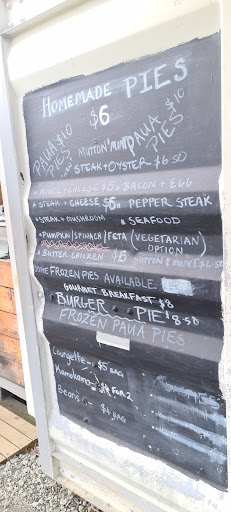 HOMEMADE PIES
$6
PAUA $10
PIES
PAUA $10
PIES
MUTTON & MINT
STEAK + OYSTER $6.50
MINCE + CHEESE $6 BACON + EGG
STEAK + CHEESE $6 PEPPER STEAK
STEAK + MUSHROOM SEAFOOD
PUMPKIN/SPINACH/FETA (VEGETARIAN)
OPTION
BUTTER CHICKEN $6 MUTTON & MINT $6.50
SOME FROZEN PIES AVAILABLE
GOURMET BREAKFAST $8
BURGER PIE $8.50
FROZEN PAUA PIES
Courgette - $5 BAG
Kamokamo - $4 FOR 2
Beans - $6 BAG